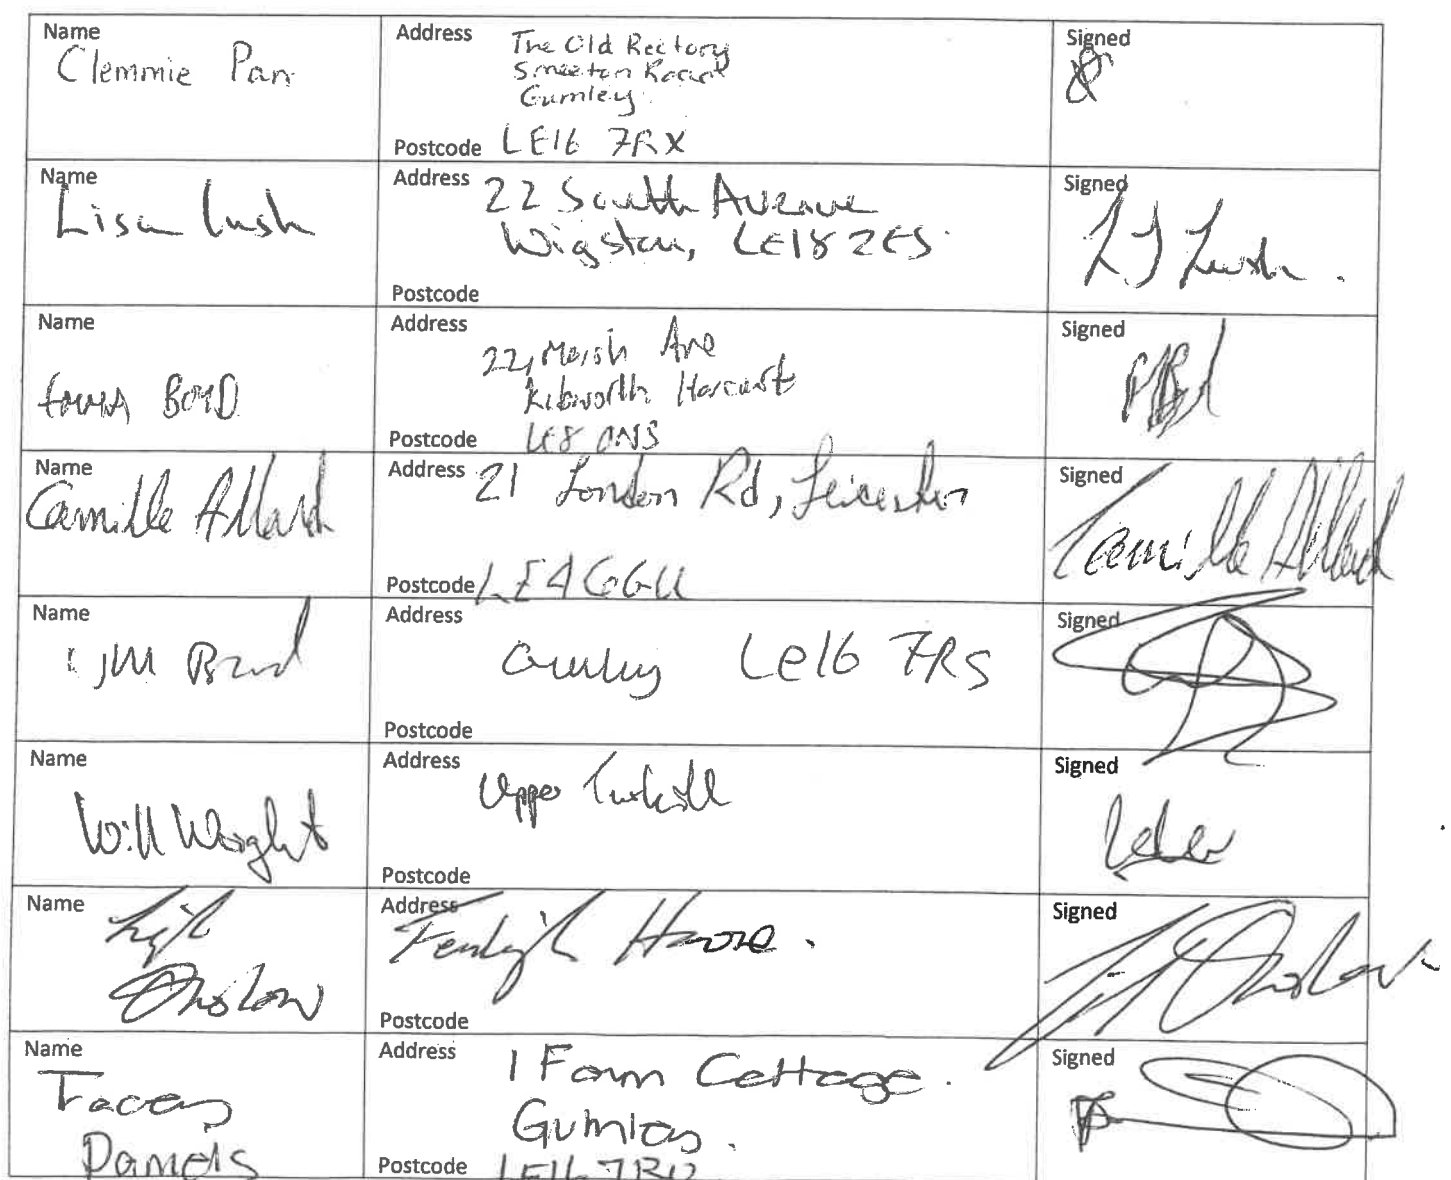 Name
Clemmie Parr
Address
The Old Rectory
Smeeton Road
Gumley
Postcode LE16 7RX
Signed
Name
Lisa Lush
Address
22 South Avenue
Wigston, LE18 2ES.
Postcode
Signed
LJ Lush.
Name
EMMA BOYD
Address
22, Marsh Ave
Kibworth Harcourt
Postcode LE8 0NS
Signed
Name
Camille Allard
Address 21 London Rd, Leicester
Postcode LE4 6GU
Signed
Camille Allard
Name
Address
Gumley LE16 7RS
Postcode
Signed
Name
Will Wright
Address
Upper
Postcode
Signed
Name
Leigh
Onslow
Address
House.
Postcode
Signed
Onslow
Name
Tracey
Daniels
Address
1 Farm Cottage.
Gumley.
Postcode LE16 7RU
Signed